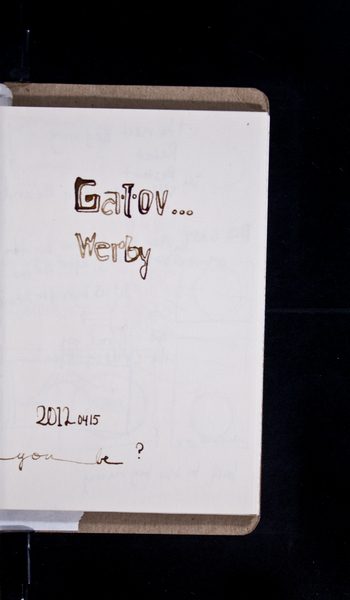 Gatov...
Werby
2012 04 15
you be ?